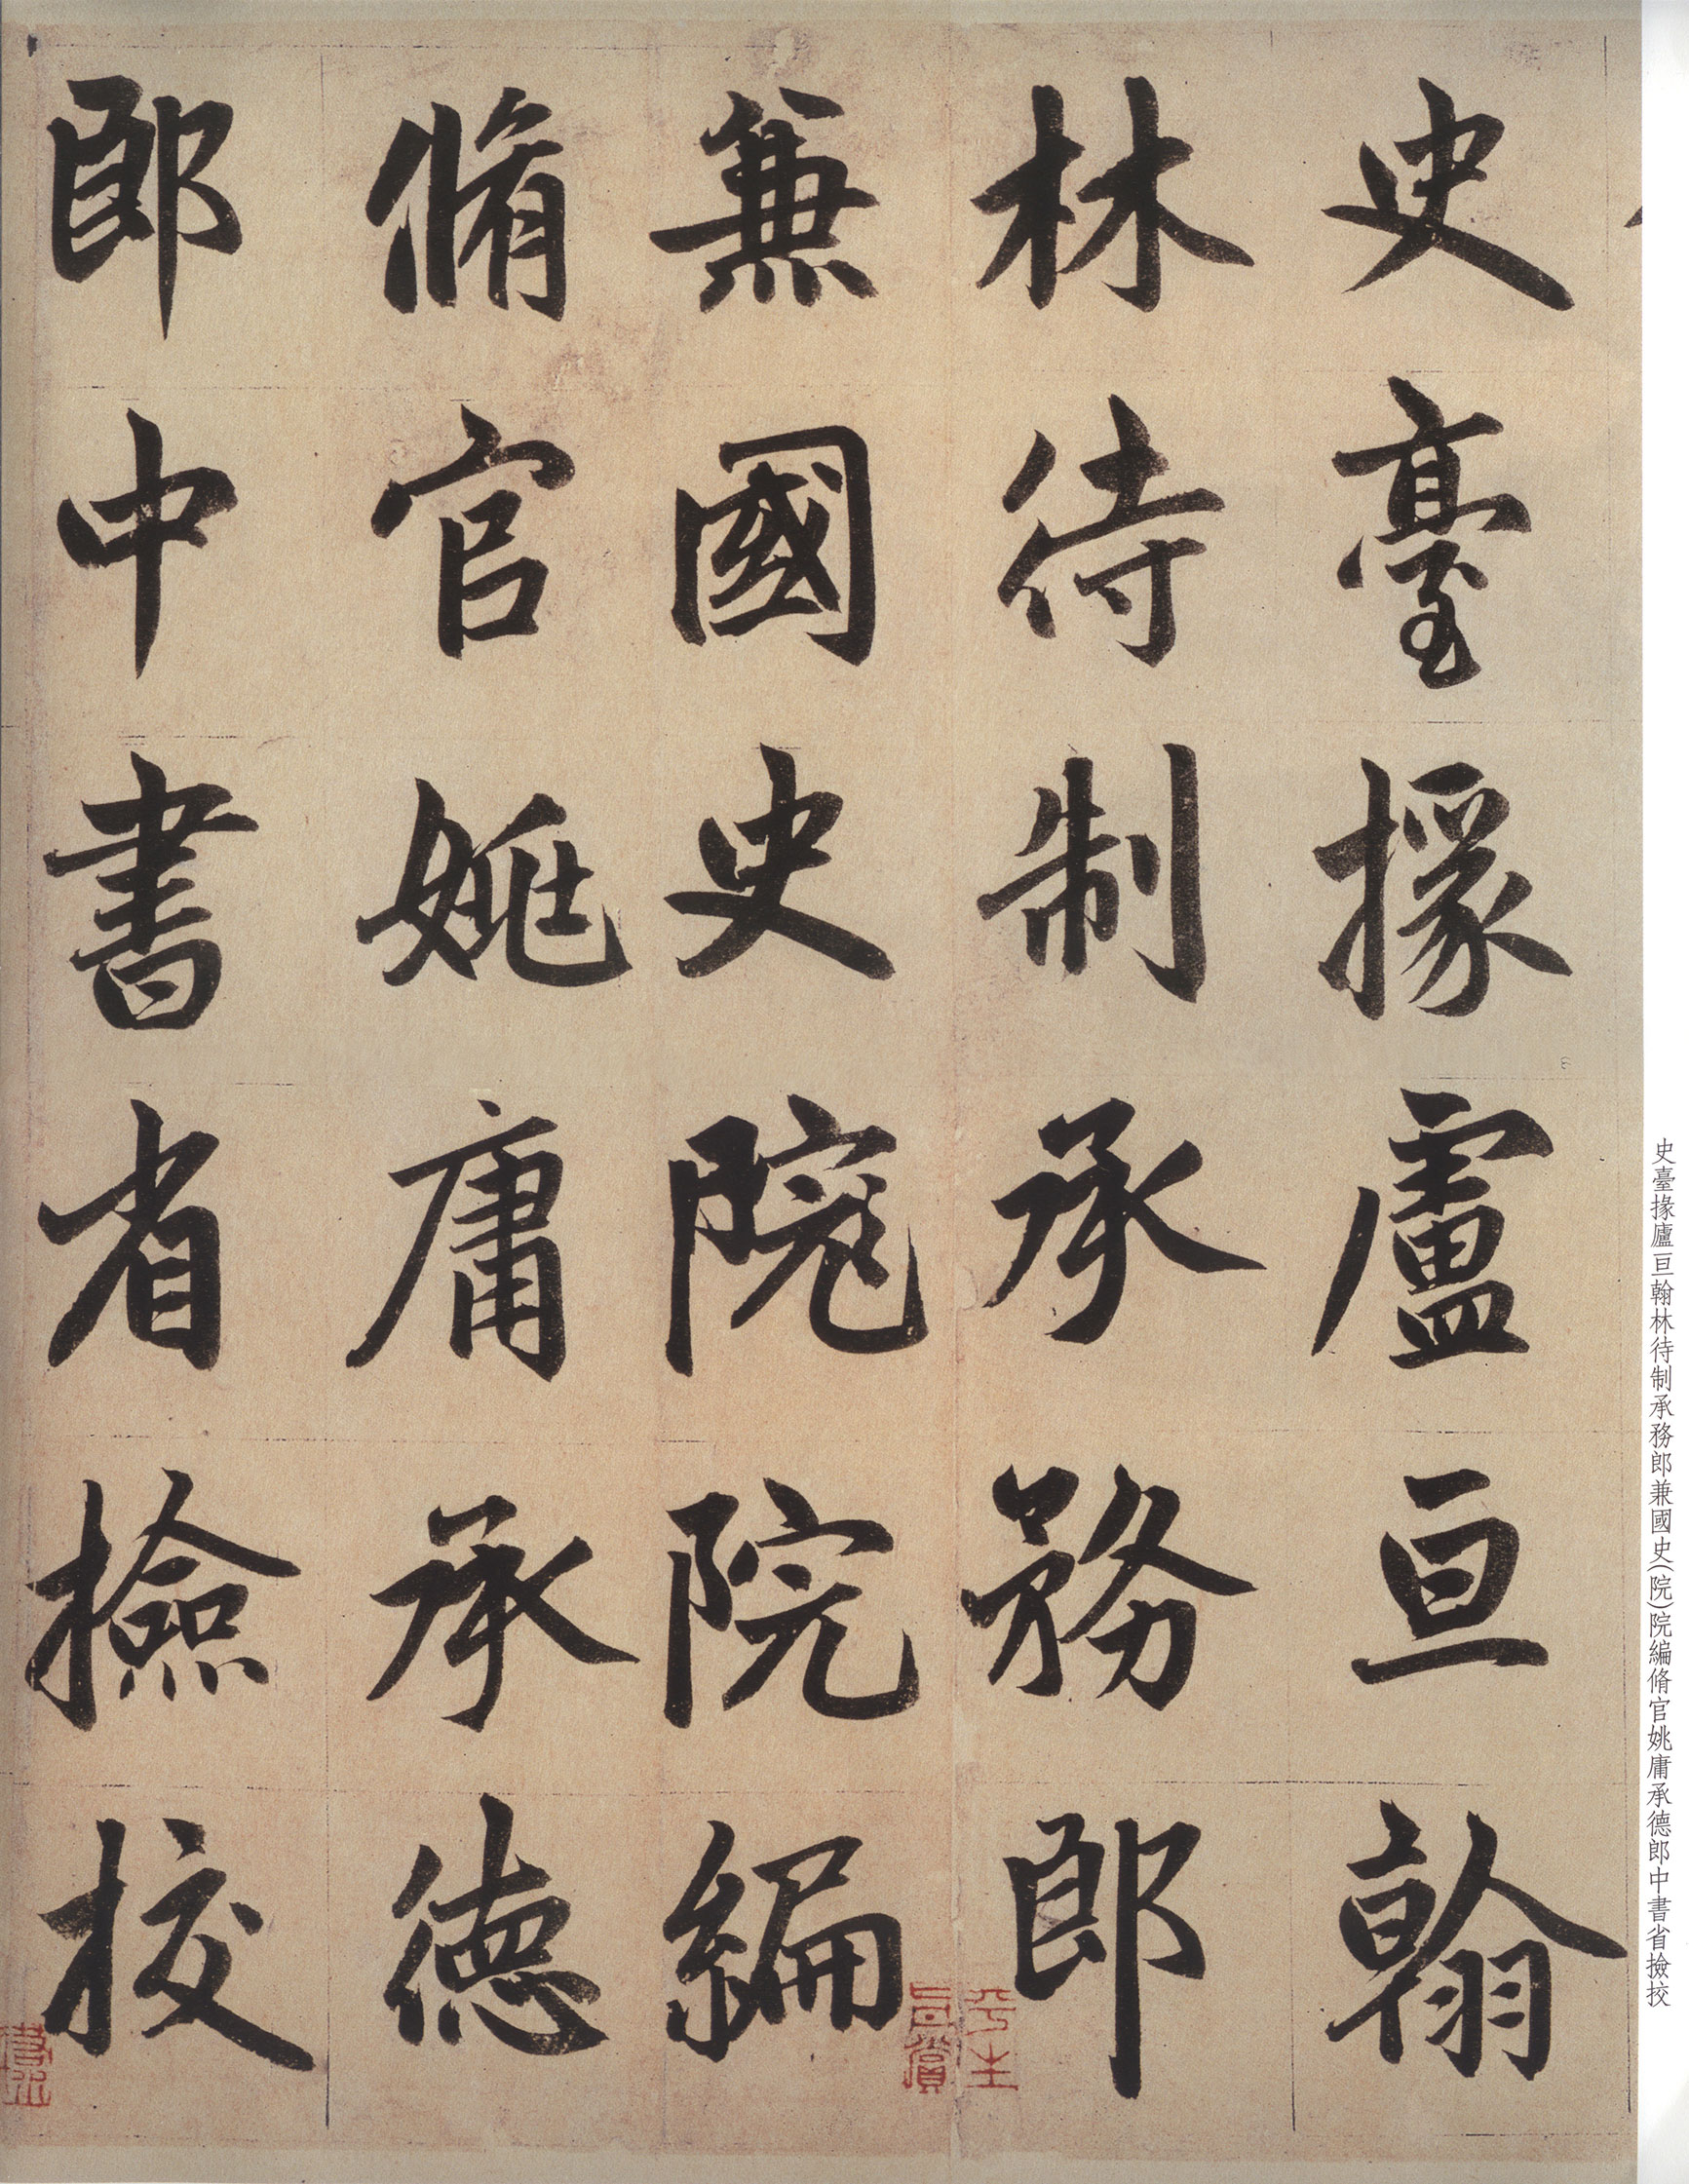 史臺掾盧亘翰
林待制承務郎
兼國史院院編
脩官姚庸承德
郎中書省撿挍
史臺掾廬亘翰林待制承務郎兼國史(院)院編脩官姚庸承德郎中書省撿挍
平生
真賞